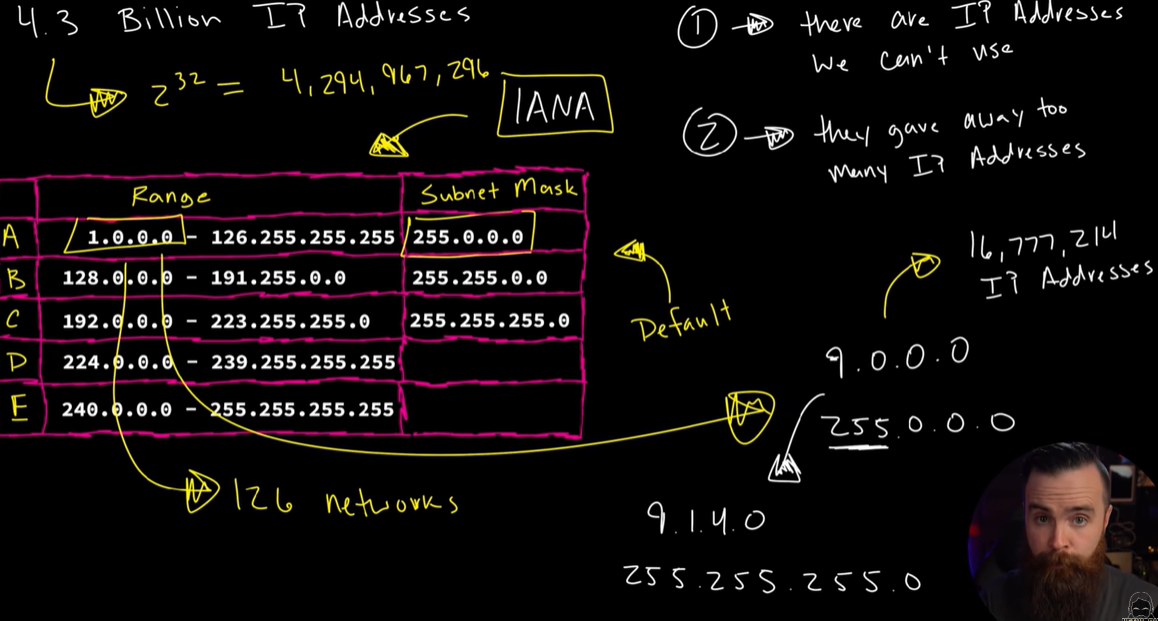 4.3 Billion IP Addresses
2^32 = 4,294,967,296
IANA
Range Subnet Mask
A 1.0.0.0 - 126.255.255.255 255.0.0.0
B 128.0.0.0 - 191.255.0.0 255.255.0.0
C 192.0.0.0 - 223.255.255.0 255.255.255.0
D 224.0.0.0 - 239.255.255.255
E 240.0.0.0 - 255.255.255.255
126 networks
Default
1 there are IP Addresses
we can't use
2 they gave away too
many IP Addresses
16,777,214
IP Addresses
9.0.0.0
255.0.0.0
9.1.4.0
255.255.255.0